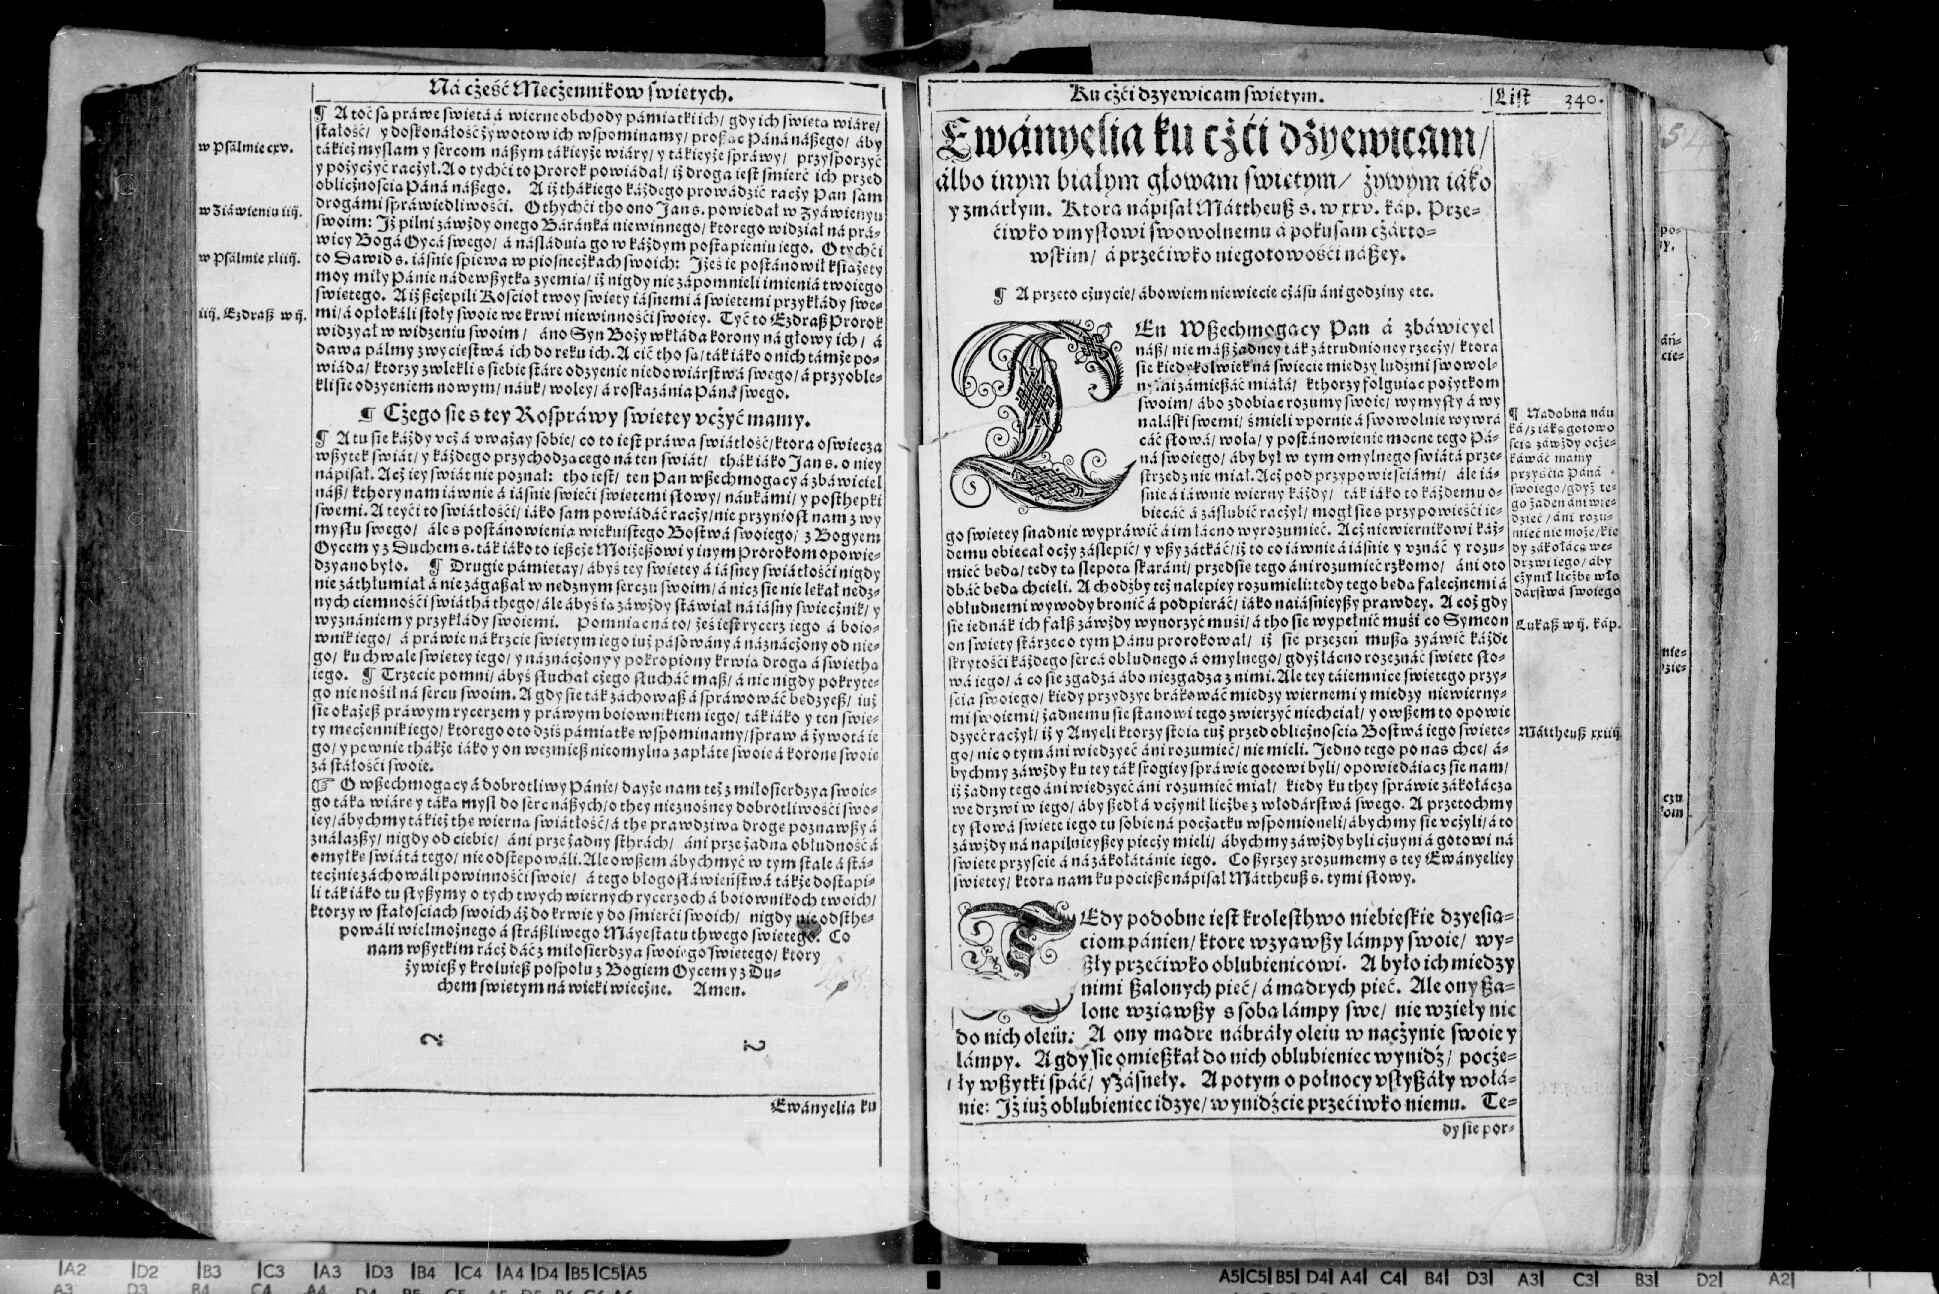 Ná cżeść Mecżennikow swietych.
w Psálmie cxv.
w Ziáwieniu iiij.
w Psálmie xliiij.
iiij. Ezdraß w ij.
¶ A toć sa práwe swietá á wierne obchody pámiatki ich/ gdy ich swieta wiáre/
stałość/ y doskonáłość żywotow ich wspominamy/ proßac Páná náßego/ áby
tákież myslam y sercom náßym tákieyże wiáry/ y tákieyże spráwy/ przysporzyć
y pożyczyć raczył. A o tychći to Prorok powiádał/ iż droga iest smierć ich przed
oblicżnoscia Páná náßego. A iż thákiego káżdego prowádzić racży Pan sam
drogámi spráwiedliwości. O thychći tho ono Jan s. powiedał w Zyáwienyu
swoim: Jż pilni záwżdy onego Báránká niewinnego/ ktorego widział ná prá-
wicy Bogá Oycá swego/ á násláduia go w káżdym postapieniu iego. O tychći
to Dawid s. iásnie spiewa w piosnecżkach swoich: Jżeś ie postánowił ksiażety
moy miły Pánie nádewßytka zyemia/ iż nigdy nie zápomnieli imienia twoiego
swietego. A iż ßcżepili Kościoł twoy swiety iásnemi á swietemi przykłády swe-
mi/ á opłokáli stoły swoie we krwi niewinności swoiey. Tyć to Ezdraß Prorok
widzyał w widzeniu swoim/ áno Syn Boży wkłáda korony ná głowy ich/ á
dawa pálmy zwyciestwá ich do reku ich. A cić tho sa/ ták iáko o nich támże po-
wiáda/ ktorzy zwlekli s siebie stáre odzyenie niedowiárstwá swego/ á przyoble-
kli sie odzyeniem nowym/ náuk/ woley/ á roskazánia Páná swego.
¶ Cżego sie s tey Rospráwy swietey vcżyć mamy.
¶ A tu sie káżdy vcż á vważay sobie/ co to iest práwa swiátłość/ ktora oswieca
wßytek swiát/ y káżdego przychodzacego ná ten swiát/ thák iáko Jan s. o niey
nápisał. Acż iey swiát nie poznał: tho iest/ ten Pan wßechmogacy á zbáwiciel
náß/ kthory nam iáwnie á iásnie swieci swietemi słowy/ náukámi/ y posthepki
swemi. A teyći to swiátłości/ iáko sam powiádáć racży/ nie przyniosł nam z wy
mysłu swego/ ále s postánowienia wiekuistego Bostwá swoiego/ z Bogyem
Oycem y z Duchem s. ták iáko to ießcże Moiżeßowi y inym Prorokom opowie-
dzyano było. ¶ Drugie pámietay/ ábyś tey swietey á iásney swiátłości nigdy
nie záthłumiał á nie zágaßał w nedznym sercżu swoim/ á nicż sie nie lekał nedz-
nych ciemności swiáthá thego/ ále ábyś ia záwżdy stáwiał ná iásny swiecżnik/ y
wyznániem y przykłády swoiemi. Pomniac ná to/ żeś iest rycerz iego á boio-
wnik iego/ á práwie ná krzcie swietym iego iuż pásowány á náznácżony od nie-
go/ ku chwale swietey iego/ y náznácżony y pokropiony krwia droga á swietha
iego. ¶ Trzecie pomni/ ábyś słuchał cżego słucháć maß/ á nic nigdy pokryte-
go nie nosił ná sercu swoim. A gdy sie ták záchowaß á spráwowáć bedzyeß/ iuż
sie okażeß práwym rycerzem y práwym boiownikiem iego/ ták iáko y ten swie-
ty mecżennik iego/ ktorego oto dziś pámiatke wspominamy/ spraw á żywotá ie
go/ y pewnie thákże iáko y on wezmieß nieomylna zapłáte swoie á korone swoie
zá stáłości swoie.
☞ O wßechmogacy á dobrotliwy Pánie/ dayże nam też z miłosierdzya swoie-
go táka wiáre y táka mysl do serc náßych/ o they nieznośney dobrotliwości swo-
iey/ ábychmy tákież the wierna swiátłość/ á the prawdziwa droge poznawßy á
ználazßy/ nigdy od ciebie/ áni prze żadny sthrách/ áni prze żadna obłudność á
omyłke swiátá tego/ nie odstepowáli. Ale owßem ábychmyć w tym stale á stá-
tecżnie záchowáli powinności swoie/ á tego błogosłáwieństwá tákże dostápi-
li ták iáko tu słyßymy o tych twych wiernych rycerzoch á boiownikoch twoich/
ktorzy w stałościach swoich áż do krwie y do smierci swoich/ nigdy nie odsthe-
powáli wielmożnego á stráßliwego Máyestatu thwego swietego. Co
nam wßytkim racż dáć z miłosierdzya swoiego swietego/ ktory
żywieß y kroluieß pospołu z Bogiem Oycem y z Du-
chem swietym ná wieki wiecżne. Amen.
Ewányelia ku
Ku cżći dzyewicam swietym.
List 340.
Ewányelia ku cżći dżyewicam/
álbo inym białym głowam swietym/ żywym iáko
y zmárłym. Ktora nápisał Mátheuß s. w xxv. káp. Prze-
ćiwko vmysłowi swowolnemu á pokusam cżárto-
wskim/ á przećiwko niegotowości náßey.
¶ A przeto cżuycie/ ábowiem niewiecie cżásu áni godziny etc.
TEn Wßechmogacy Pan á zbáwicyel
náß/ nie máß żadney ták zátrudnioney rzecży/ ktora
sie kiedykolwiek ná swiecie miedzy ludźmi swowol-
nymi zámießáć miáłá/ kthorzy folguiac pożytkom
swoim/ ábo zdobiac rozumy swoie/ wymysły á wy
nálaski swemi/ śmieli vpornie á swowolnie wywrá
cáć słowá/ wola/ y postánowienie mocne tego Pá-
ná swoiego/ áby był w tym omylnego swiátá prze-
strzedz nie miał. Acż pod przypowieściámi/ ále iá-
śnie á iáwnie wierny káżdy/ ták iáko to káżdemu o-
biecáć á záslubić racżył/ mogł sie s przypowieści ie-
go swietey snadnie wypráwić á im łácno wyrozumieć. Acż niewiernikowi káż-
demu obiecał ocży záslepić/ y vßy zátkáć/ iż to co iáwnie á iásnie y vznáć y rozu-
mieć beda/ tedy ta slepota skaráni/ przedsie tego áni rozumieć rzkomo/ áni o to
dbáć beda chcieli. A chodżby też nalepiey rozumieli: tedy tego beda fałecżnemi á
obłudnemi wywody bronić á podpieráć/ iáko naiásnieyßy prawdzy. A coż gdy
sie iednák ich fálß záwżdy wynorzyć muśi/ á tho sie wypełnić muśi co Symeon
on swiety stárzec o tym Pánu prorokował/ iż sie przezeń mußa zyáwić káżde
skrytości káżdego sercá obłudnego á omylnego/ gdyż łácno rozeznáć swiete sło-
wá iego/ á co sie zgadza ábo niezgadza z nimi. Ale tey táiemnice swietego przy-
ścia swoiego/ kiedy przydzye brákowáć miedzy wiernemi y miedzy niewierny-
mi swoiemi/ żadnemu sie stanowi tego zwierzyć niechciał/ y owßem to opowie
dzyeć racżył/ iż y Anyeli ktorzy stoia tuż przed oblicżnoscia Bostwá iego swiete-
go/ nic o tym áni wiedzyeć áni rozumieć/ nie mieli. Jedno tego po nas chce/ á-
bychmy záwżdy ku tey ták srogiey spráwie gotowi byli/ opowiedáiacz sie nam/
iż żadny tego áni wiedzyeć áni rozumieć miał/ kiedy ku they spráwie zákołácza
we drzwi w iego/ áby ßedł á vcżynił licżbe z włodárstwá swego. A przetochmy
ty słowá swiete iego tu sobie ná pocżatku wspomioneli/ ábychmy sie vcżyli/ á to
záwżdy ná napilnieyßey piecży mieli/ ábychmy záwżdy byli cżuyni á gotowi ná
swiete przyscie á ná zákołátánie iego. Co ßyrzey zrozumemy s tey Ewányeliey
swietey/ ktora nam ku pocieße nápisał Mátheuß s. tymi słowy.
TEdy podobne iest krolesthwo niebieskie dzyesia-
ciom pánien/ ktore wzyawßy lámpy swoie/ wy-
ßły przećiwko oblubienicowi. A było ich miedzy
nimi ßalonych pieć/ á madrych pieć. Ale ony ßa-
lone wziawßy s soba lámpy swe/ nie wzieły nic
do nich oleiu: A ony madre nábráły oleiu w nacżynie swoie y
lámpy. A gdy sie omießkał do nich oblubieniec wynidź/ pocże-
ły wßytki spáć/ y zásneły. A potym o połnocy vsłyßáły wołá-
nie: Jż iuż oblubieniec idzye/ wynidźcie przećiwko niemu. Te-
dy sie por-
¶ Nadobna náu
ká/ z iáka gotowo
ścia záwżdy ocże-
káwáć mamy
przyścia Páná
swoiego/ gdyż te-
go żaden áni wie-
dzieć/ áni rozu-
mieć nie może/ kie
dy zákołáce we-
drzwi iego/ áby
cżynił licżbe wło
dárstwá swoiego
Lukaß w ij. káp.
Máttheuß xxiiij.